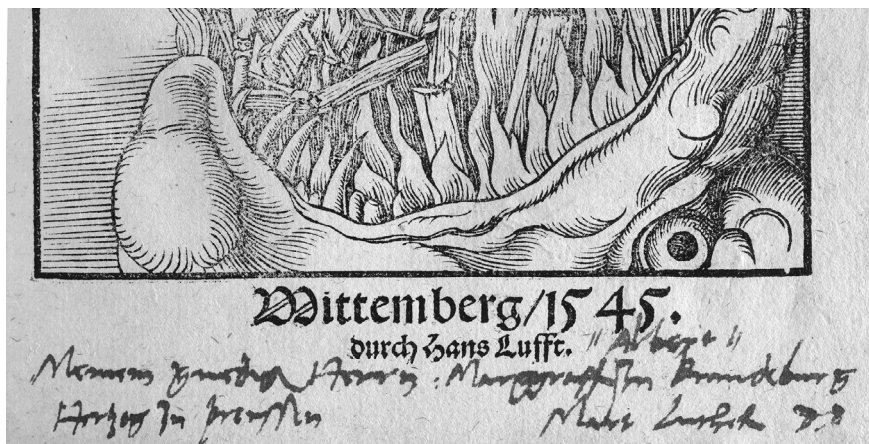 Wittemberg/1545.
durch Hans Lufft.
"Albrxt"
Meinem gnedigen Herrn Marggraff zu Brandeburg
Herzog zu Preussen
Mart Luther D.